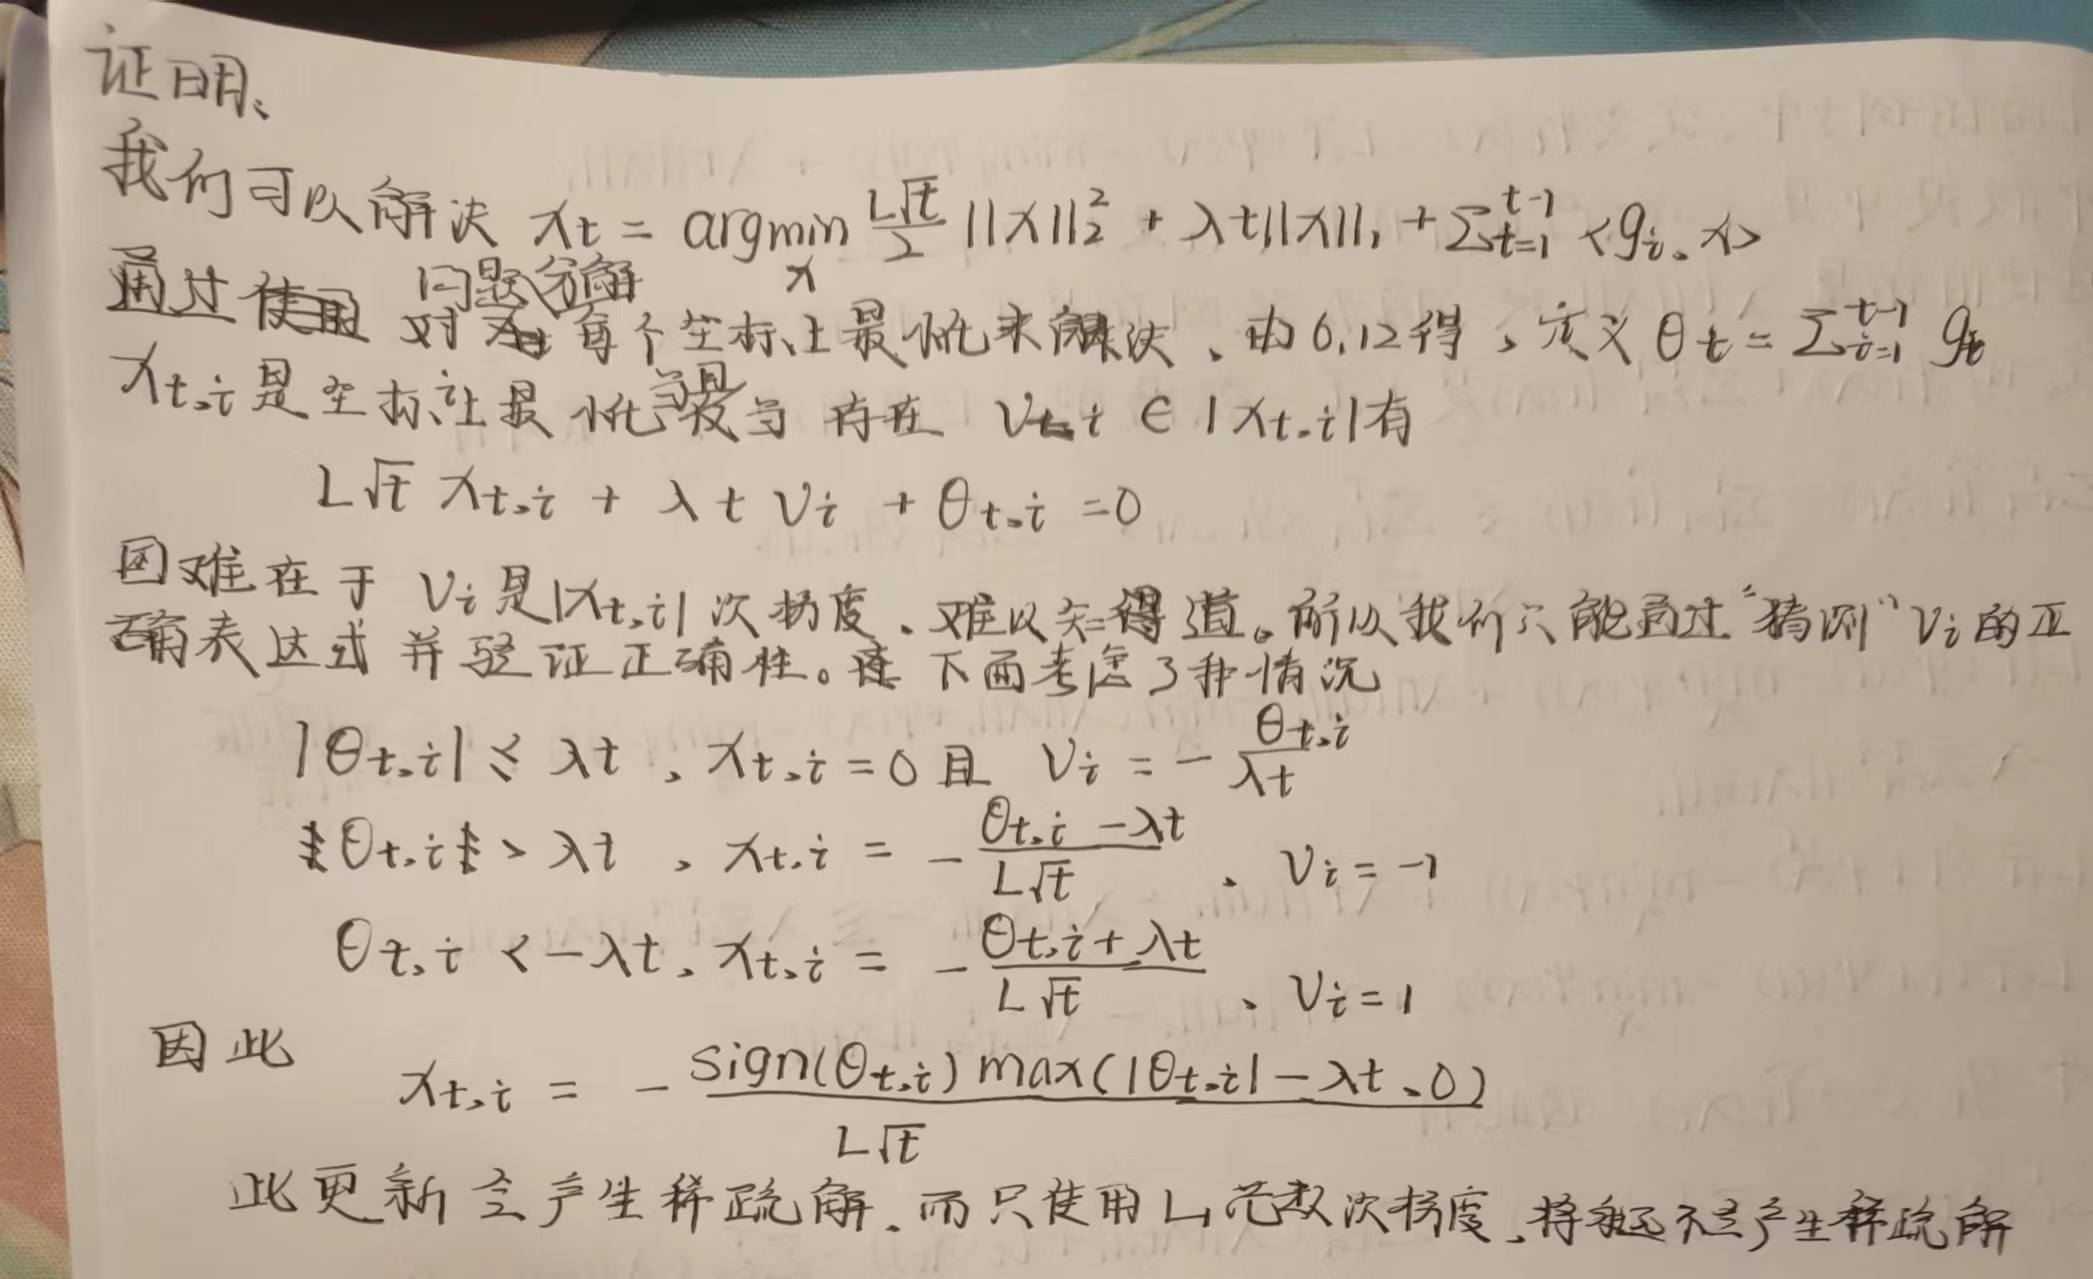 证明、
我们可以解决 xₜ = argmin L√t/2 ||x||₂² + λt||x||₁ + Σ_{t=1}^{t-1} <gᵢ, x>
x
问题分解
通过使用 对 每个坐标上最优来解决、由6.12得,定义 θₜ = Σ_{i=1}^{t-1} gₜ
当且
x_{t,i} 是坐标i上最优 当 存在 v_{t,i} ∈ |x_{t,i}| 有
L√t x_{t,i} + λt vᵢ + θ_{t,i} = 0
困难在于 vᵢ是|x_{t,i}|次梯度、难以知道。所以我们只能通过“猜测”vᵢ的正
确表达式并验证正确性。下面考虑3种情况
|θ_{t,i}| ≤ λt 、x_{t,i} = 0 且 vᵢ = - θ_{t,i}/λt
θ_{t,i} > λt 、x_{t,i} = - (θ_{t,i} - λt)/L√t 、vᵢ = -1
θ_{t,i} < -λt、x_{t,i} = - (θ_{t,i} + λt)/L√t 、vᵢ = 1
因此
x_{t,i} = - sign(θ_{t,i}) max(|θ_{t,i}| - λt、0)/L√t
此更新会产生稀疏解、而只使用L₁范数次梯度、将 不会产生稀疏解